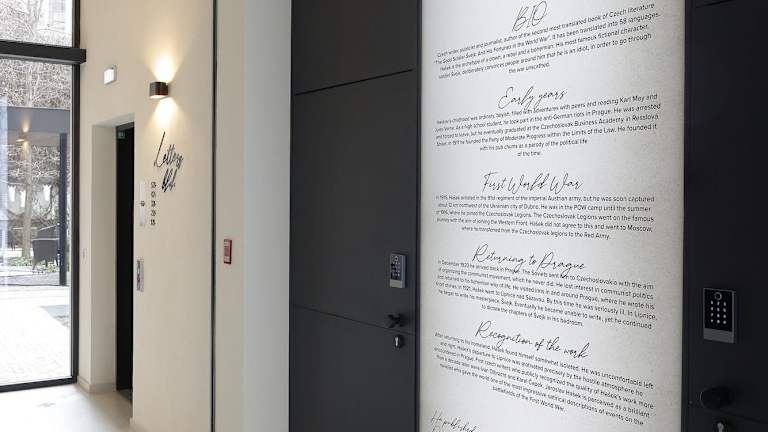 BIO
Czech writer, publicist and journalist, author of the second most translated book of Czech literature
"The Good Soldier Švejk: And His Fortunes in the World War". It has been translated into 58 languages.
Hašek is the archetype of a clown, a rebel and a bohemian. His most famous fictional character,
soldier Švejk, deliberately convinces people around him that he is an idiot, in order to go through
the war unscathed.
Early years
Hašek's childhood was ordinary, boyish, filled with adventures with peers and reading Karl May and
Jules Verne. As a high school student, he took part in the anti-German riots in Prague. He was arrested
and forced to leave, but he eventually graduated at the Czechoslovak Business Academy in Resslova
Street. In 1911 he founded the Party of Moderate Progress within the Limits of the Law. He founded it
with his pub chums as a parody of the political life
of the time.
First World War
In 1915, Hašek enlisted in the 91st regiment of the imperial Austrian army, but he was soon captured
about 12 km northwest of the Ukrainian city of Dubno. He was in the POW camp until the summer
of 1916, where he joined the Czechoslovak Legions. The Czechoslovak Legions went on the famous
journey with the aim of joining the Western Front. Hašek did not agree to this and went to Moscow,
where he transferred from the Czechoslovak legions to the Red Army.
Returning to Prague
In December 1920 he arrived back in Prague. The Soviets sent him to Czechoslovakia with the aim
of organizing the communist movement, which he never did. He lost interest in communist politics
and returned to his bohemian way of life. He visited inns in and around Prague, where he wrote his
short stories. In 1921, Hašek went to Lipnice nad Sázavou. By this time he was seriously ill. In Lipnice,
he began to write his masterpiece, Švejk. Eventually he became unable to write, yet he continued
to dictate the chapters of Švejk in his bedroom.
Recognition of the work
After returning to his homeland, Hašek found himself somewhat isolated. He was uncomfortable left
and right. Hašek's departure to Lipnice was motivated precisely by the hostile atmosphere he
encountered in Prague. First czech writers who publicly recognized the quality of Hašek's work more
than a decade later were Ivan Olbracht and Karel Čapek. Jaroslav Hašek is perceived as a brilliant
novelist who gave the world one of the most impressive satirical descriptions of events on the
battlefields of the First World War.
He published